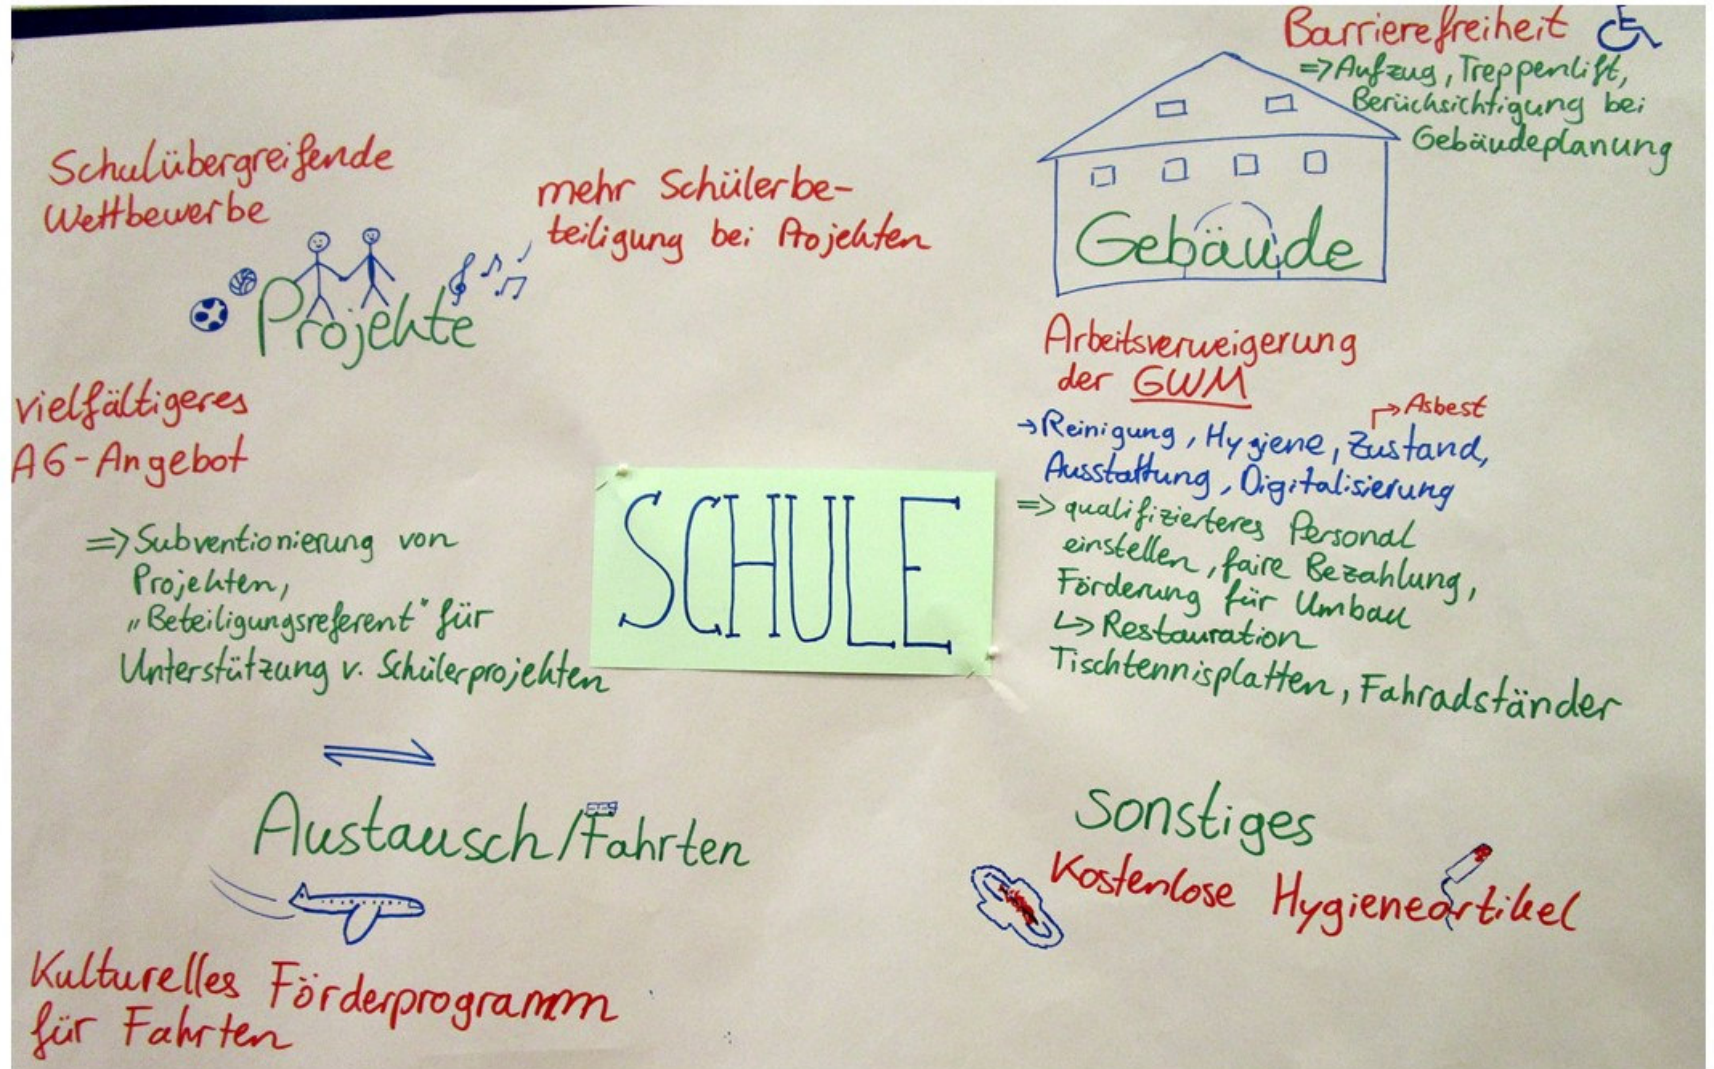 Schulübergreifende
Wettbewerbe
mehr Schülerbe-
teiligung bei Projekten
Projekte
vielfältigeres
AG-Angebot
=> Subventionierung von
Projekten,
„Beteiligungsreferent" für
Unterstützung v. Schülerprojekten
Barrierefreiheit
=> Aufzug, Treppenlift,
Berücksichtigung bei
Gebäudeplanung
Gebäude
Arbeitsverweigerung
der GWM
→ Asbest
→ Reinigung, Hygiene, Zustand,
Ausstattung, Digitalisierung
=> qualifizierteres Personal
einstellen, faire Bezahlung,
Förderung für Umbau
↳ Restauration
Tischtennisplatten, Fahradständer
SCHULE
Austausch/Fahrten
Kulturelles Förderprogramm
für Fahrten
Sonstiges
Kostenlose Hygieneartikel